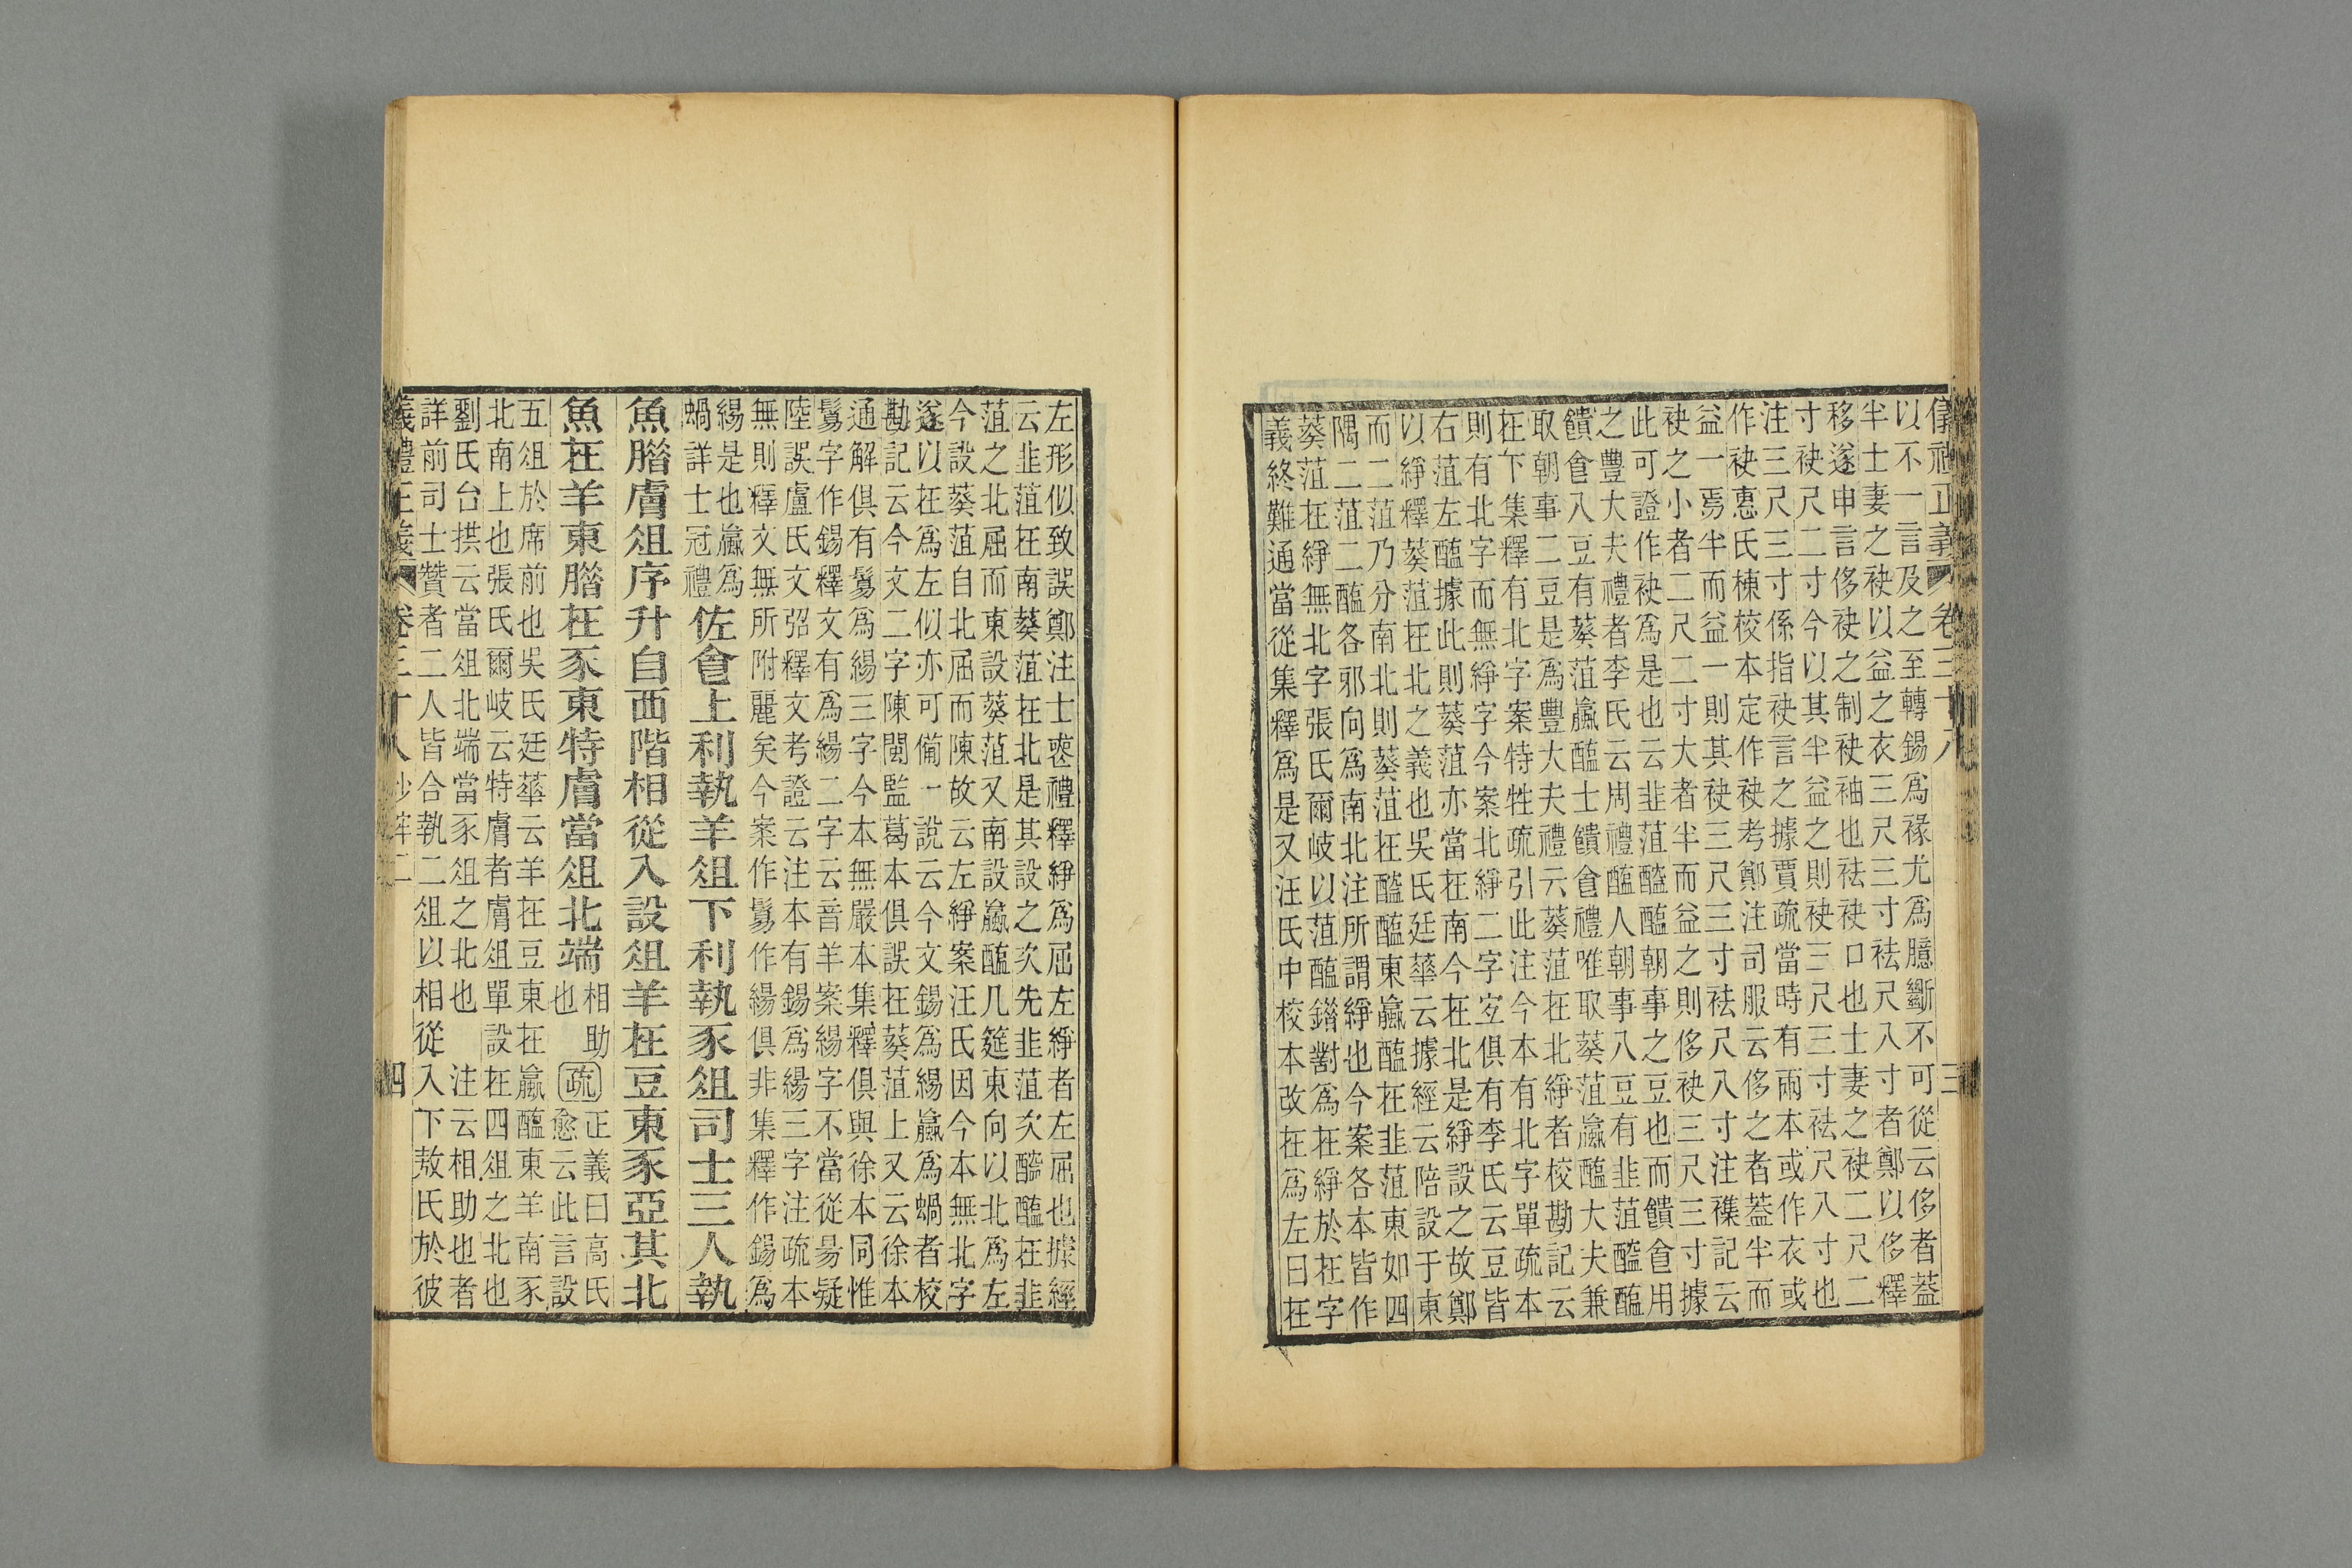 儀禮正義 卷三十八 三
以不一言及之至轉錫爲祿尤爲臆斷不可從云侈者蓋
半士妻之袂以益之衣三尺三寸袪尺八寸者鄭以侈釋
移遂申言侈袂之制袂袖也袪袂口也士妻之袂二尺二
寸袂尺二寸今以其半益之則袂三尺三寸袪尺八寸也
注三尺三寸係指袂言之據賈疏當時有兩本或作衣或
作袂惠氏棟校本定作袂考鄭注司服云侈之者蓋半而
益一焉半而益一則其袂三尺三寸袪尺八寸注襍記云
袂之小者二尺二寸大者半而益之則侈袂三尺三寸據
此可證作袂爲是也云韭菹醓醢朝事之豆也而饋食用
之豐大夫禮者李氏云周禮醢人朝事八豆有韭菹醓醢
饋食八豆有葵菹蠃醢士饋食禮唯取葵菹蠃醢大夫兼
取朝事二豆是爲豐大夫禮云葵菹在北綪者校勘記云
在下集釋有北字案特牲疏引此注今本有北字單疏本
則有北字而無綪字今案北綪二字宐俱有李氏云豆皆
右菹左醢據此則葵菹亦當在南今在北是綪設之故鄭
以綪釋葵菹在北之義也吳氏廷華云據經云陪設于東
而二菹乃分南北則葵菹在醓醢東蠃醢在韭菹東如四
隅二菹二醢各邪向爲南北注所謂綪也今案各本皆作
葵菹在綪無北字張氏爾岐以菹醢錯對爲在綪於在字
義終難通當從集釋爲是又汪氏中校本改在爲左曰在
左形似致誤鄭注士喪禮釋綪爲屈左綪者左屈也據經
云韭菹在南葵菹在北是其設之次先韭菹次醓醢在韭
菹之北屈而東設葵菹又南設蠃醢几筵東向以北爲左
今設葵菹自北屈而陳故云左綪案汪氏因今本無北字
遂以在爲左似亦可備一說云今文錫爲緆蠃爲蝸者校
勘記云今文二字陳閩監葛本俱誤在葵菹上又云徐本
通解俱有鬄爲緆三字今本無嚴本集釋俱與徐本同惟
鬄字作錫釋文有爲緆二字云音羊案緆字不當從昜疑
陸誤盧氏文弨釋文考證云注本有錫爲緆三字注疏本
無則釋文無所附麗矣今案作鬄作緆俱非集釋作錫爲
緆是也蠃爲
蝸詳士冠禮
佐食上利執羊俎下利執豕俎司士三人執
魚腊膚俎序升自西階相從入設俎羊在豆東豕亞其北
魚在羊東腊在豕東特膚當俎北端
相助
也
疏
正義曰高氏
愈云此言設
五俎於席前也吳氏廷華云羊在豆東在蠃醢東羊南豕
北南上也張氏爾岐云特膚者膚俎單設在四俎之北也
劉氏台拱云當俎北端當豕俎之北也 注云相助也者
詳前司士贊者二人皆合執二俎以相從入下敖氏於彼
儀禮正義 卷三十八 四